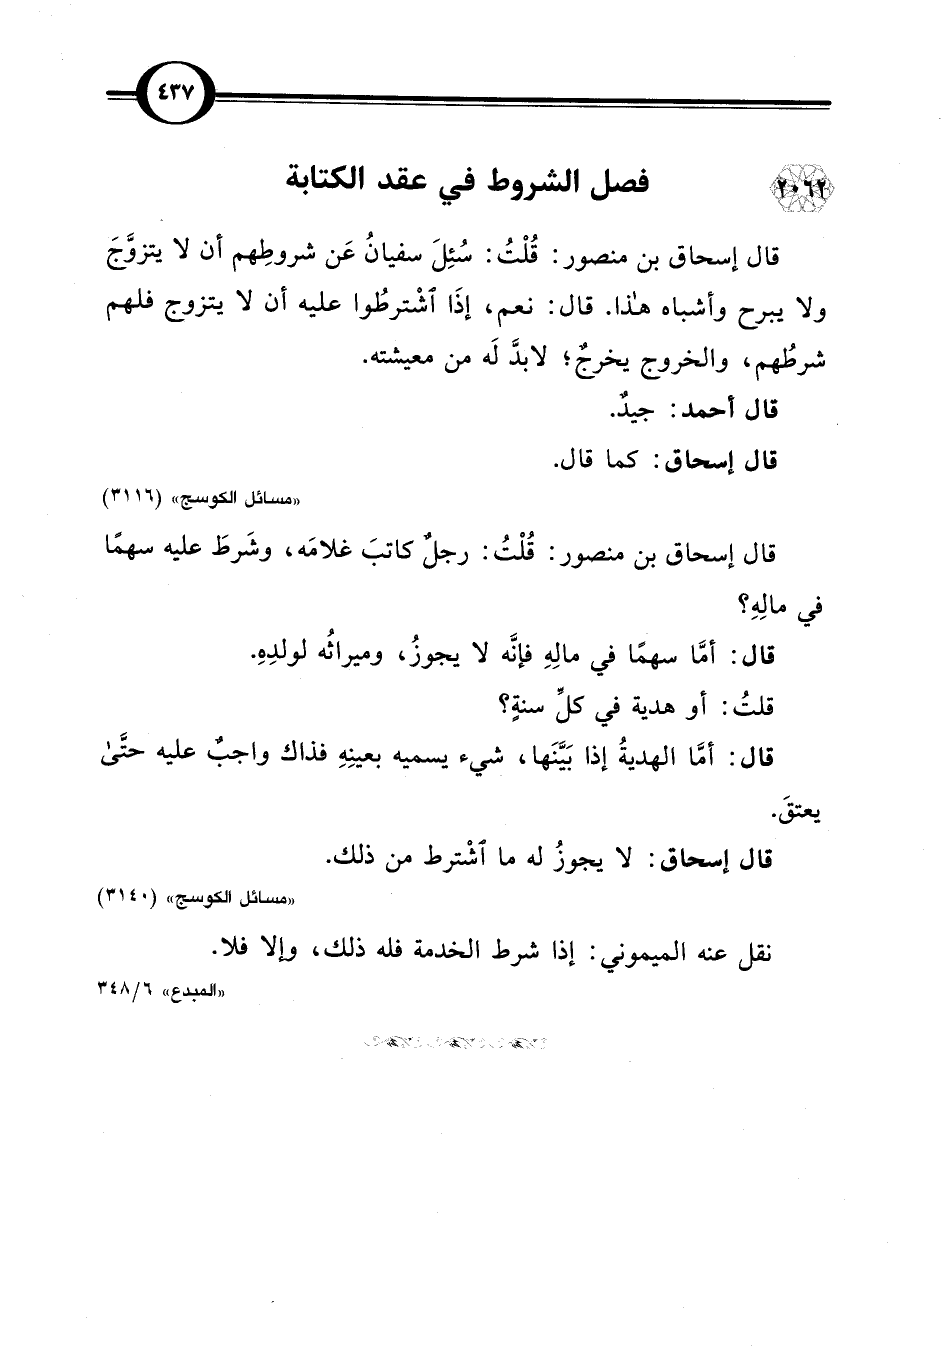 ٤٣٧
٢٠٦٢ فصل الشروط في عقد الكتابة
قال إسحاق بن منصور: قُلْتُ: سُئِلَ سفيانُ عَن شروطِهم أن لا يتزوَّجَ
ولا يبرح وأشباه هذا. قال: نعم، إذَا ٱشْترطُوا عليه أن لا يتزوج فلهم
شرطُهم، والخروج يخرجُ؛ لابدَّ لَه من معيشته.
قال أحمد: جيدٌ.
قال إسحاق: كما قال.
«مسائل الكوسج» (٣١١٦)
قال إسحاق بن منصور: قُلْتُ: رجلٌ كاتبَ غلامَه، وشَرطَ عليه سهمًا
في مالِهِ؟
قال: أمَّا سهمًا في مالِهِ فإنَّه لا يجوزُ، وميراثُه لولدِهِ.
قلتُ: أو هدية في كلِّ سنةٍ؟
قال: أمَّا الهديةُ إذا بَيَّنَها، شيء يسميه بعينِهِ فذاك واجبٌ عليه حتَّىٰ
يعتقَ.
قال إسحاق: لا يجوزُ له ما ٱشْترط من ذلك.
«مسائل الكوسج» (٣١٤٠)
نقل عنه الميموني: إذا شرط الخدمة فله ذلك، وإلا فلا.
«المبدع» ٣٤٨/٦